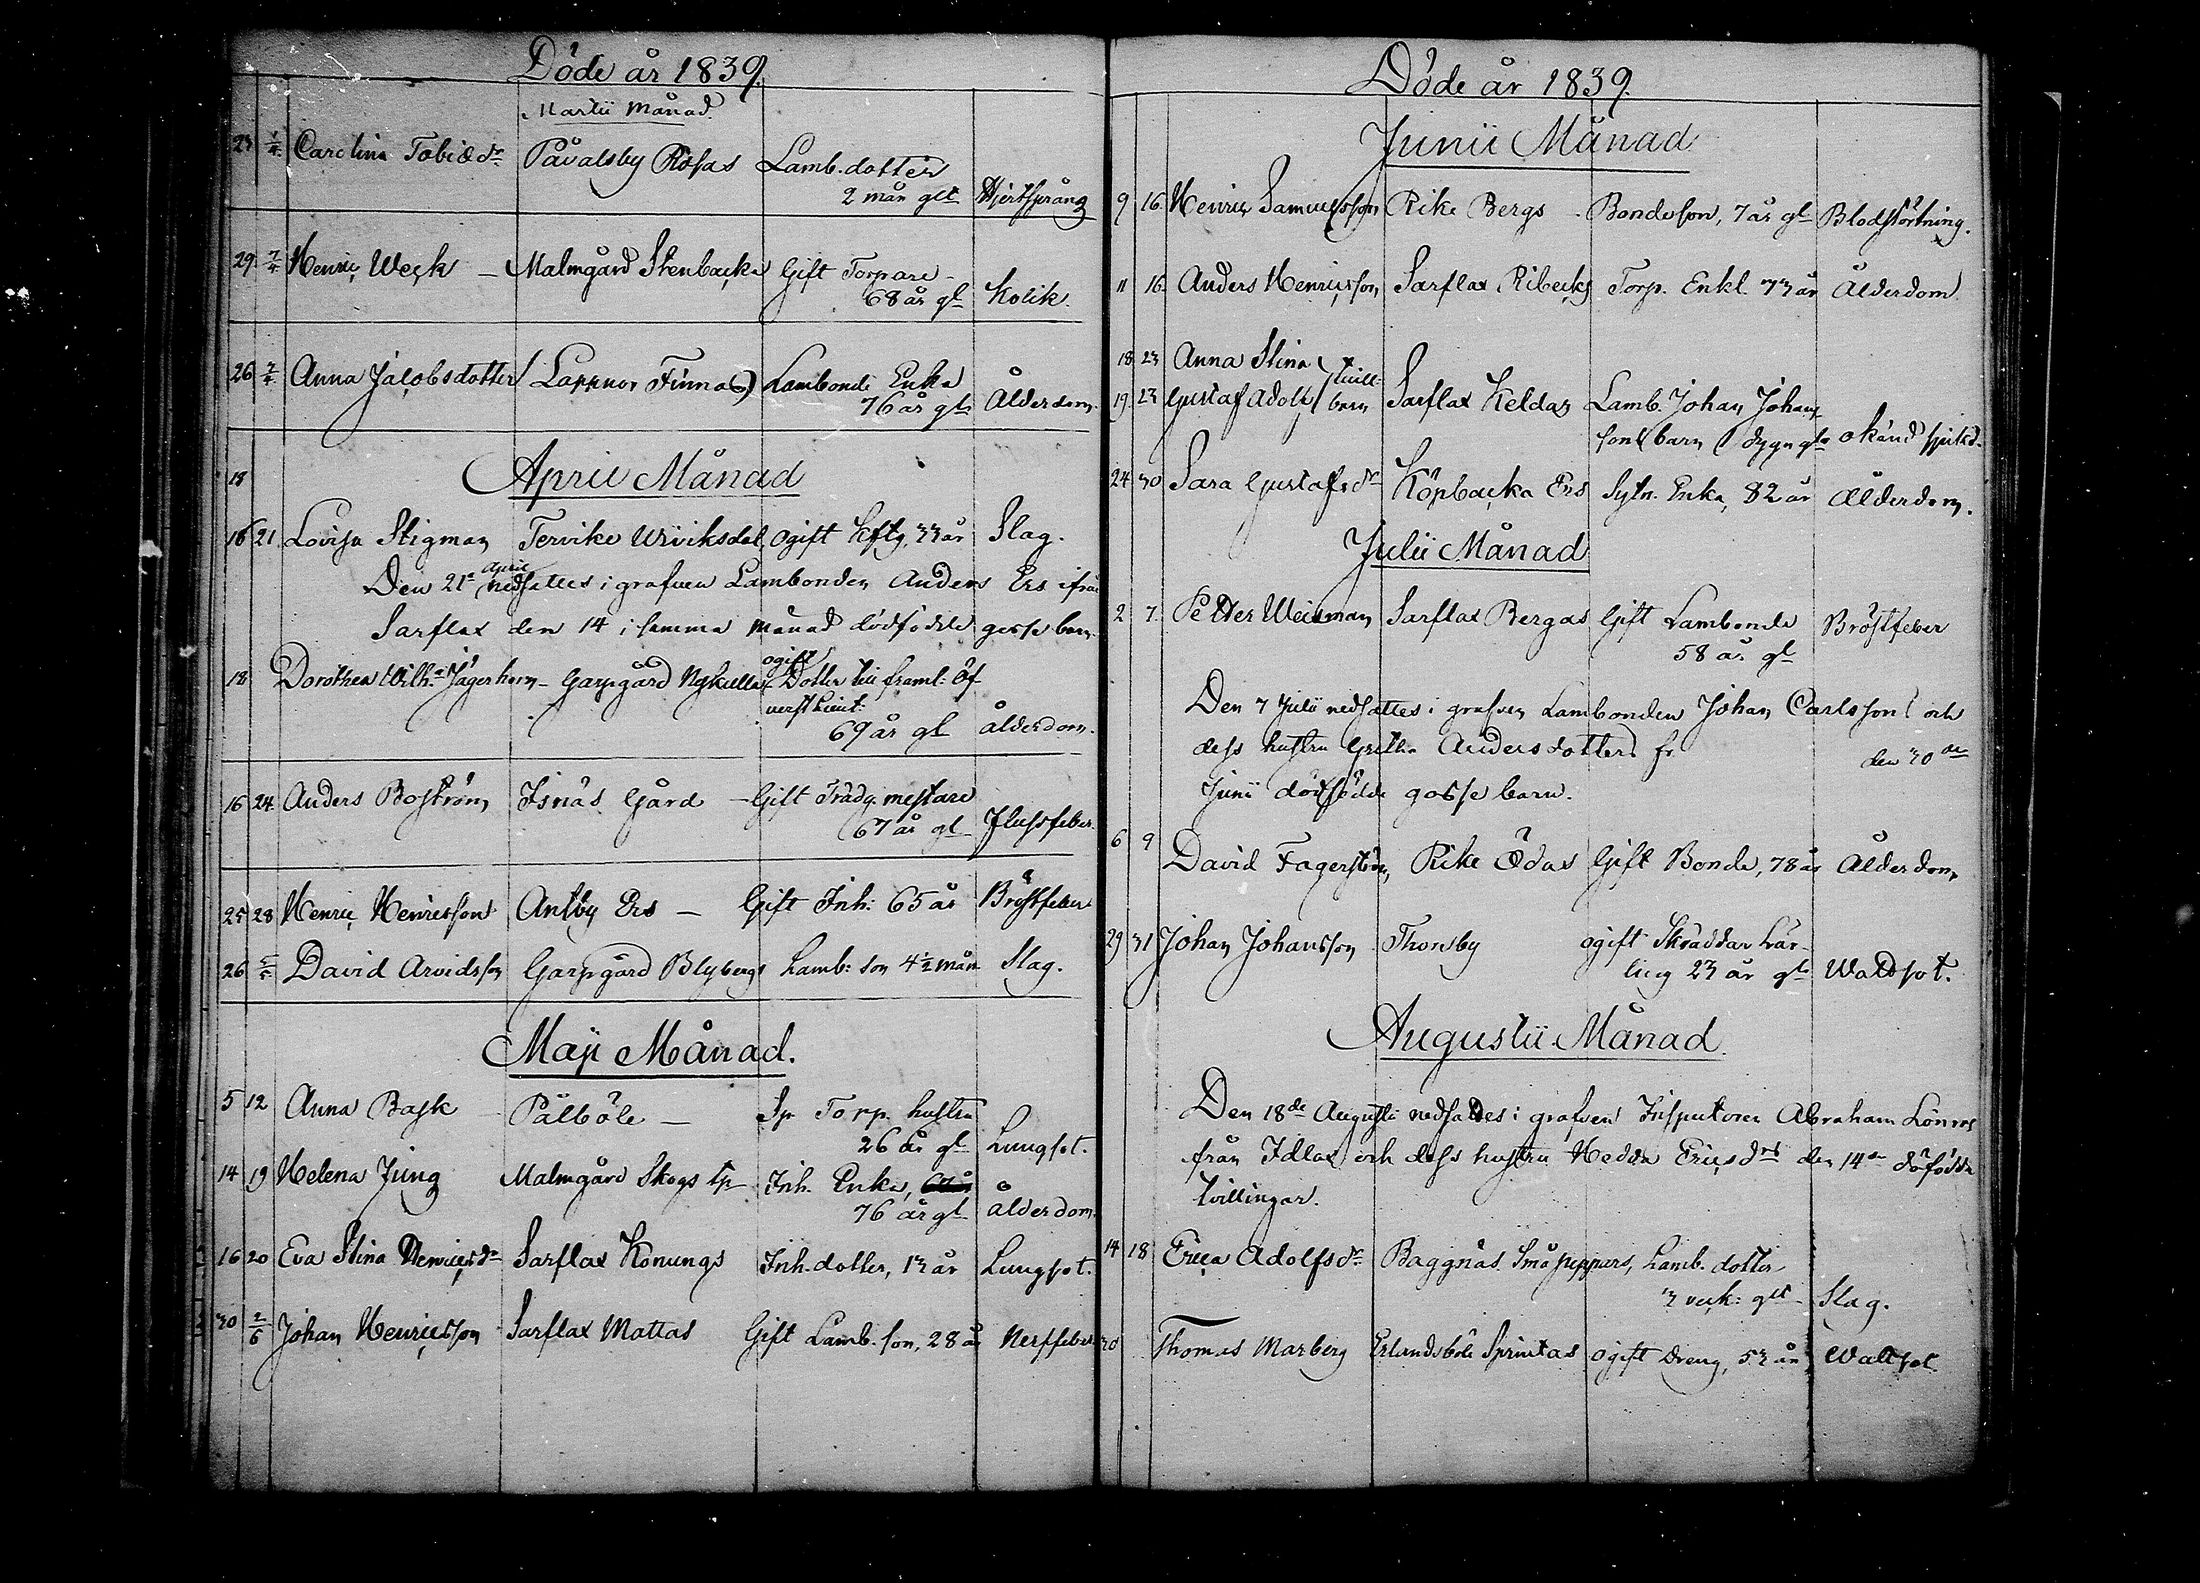 Döde år 1839.
Martii Månad.
23 1/4 Carolina Tobiædr Påvalsby Rosas Lamb. dotter
2 mån glt Hjertsprång
29 7/4 Henric Weck – Malmgård Stenbacka Gift Torpare –
68 år gl Kolik.
26 7/4 Anna Jacobsdotter Lappnor Finnas Lambonde Enka
76 år gl Ålderdom.
18 April Månad
16 21 Lovisa Stigman Tervike Ulriksdal, ogift 33 år Slag.
Den 21e April nedsattes i grafven Lambonden Anders Ers ifrån
Sarflax den 14 i samma Månad dödfödde gosse barn.
18 Dorothea Wilh:a Jägerhorn – Garpgård Nykulla ogift Dotter till framl: Öf
verst Lieut:
69 år gl ålderdom.
16 24 Anders Boström Isnäs Gård – Gift Trädg. mestare
67 år gl Flussfeber
25 28 Henric Henricsson Andby Ers – Gift Inh: 65 år Bröstfeber
26 5/5 David Arvidsson Garpgård Blybergs Lamb: son 4½ mån Slag.
Maji Månad.
5 12 Anna Bask Pålböle – Sp Torp. hustru
26 år gl Lungsot.
14 19 Helena Jung Malmgård Skogs tp Inh. Enka,
76 år gl ålderdom.
16 20 Eva Stina Henricsdr Sarflax Konungs Inh. dotter, 13 år Lungsot.
30 2/6 Johan Henricsson Sarflax Mattas Gift Lamb. son, 28 år Nerffeber
Döde år 1839.
Junii Månad
9 16 Henric Samuelsson Rike Bergs – Bondeson, 7 år gl Blodstörtning.
11 16 Anders Henricsson Sarflax Ribacks Torp. Enkl. 73 år Ålderdom
18 23 Anna Stina
19 23 Gustaf Adolf tvill-barn Sarflax Keldas Lamb. Johan Johans-
sons barn dygn gl okänd sjukd.
24 30 Sara Gustafsdr Köpbacka Ers Sytn. Enka, 82 år Ålderdom.
Julii Månad
2 7 Petter Weckman Sarflax Bergas Gift Lambonde
58 år gl Bröstfeber
Den 7 Julii nedsattes i grafven Lambonden Johan Carlsson och
dess hustru Greta Andersdotters fr den 30de
Junii dödfödde gosse barn.
6 9 David Fagerström, Rike Ödas Gift Bonde, 78 år Ålderdom
29 31 Johan Johansson Thorsby ogift Skräddar Lär-
ling 23 år gl Wattsot.
Augustii Månad.
Den 18de Augusti nedsattes i grafven Inspektoren Abraham Lönnros
från Idlax och dess hustru Hedda Ericsdrs den 14de döfödda
tvillingar.
14 18 Erica Adolfsdr Baggnäs Småpeppars, Lamb. dotter
3 veck: glt Slag.
30 Thomas Marberg Erlandsböle Sprintas ogift Dreng, 53 år Wattsot.